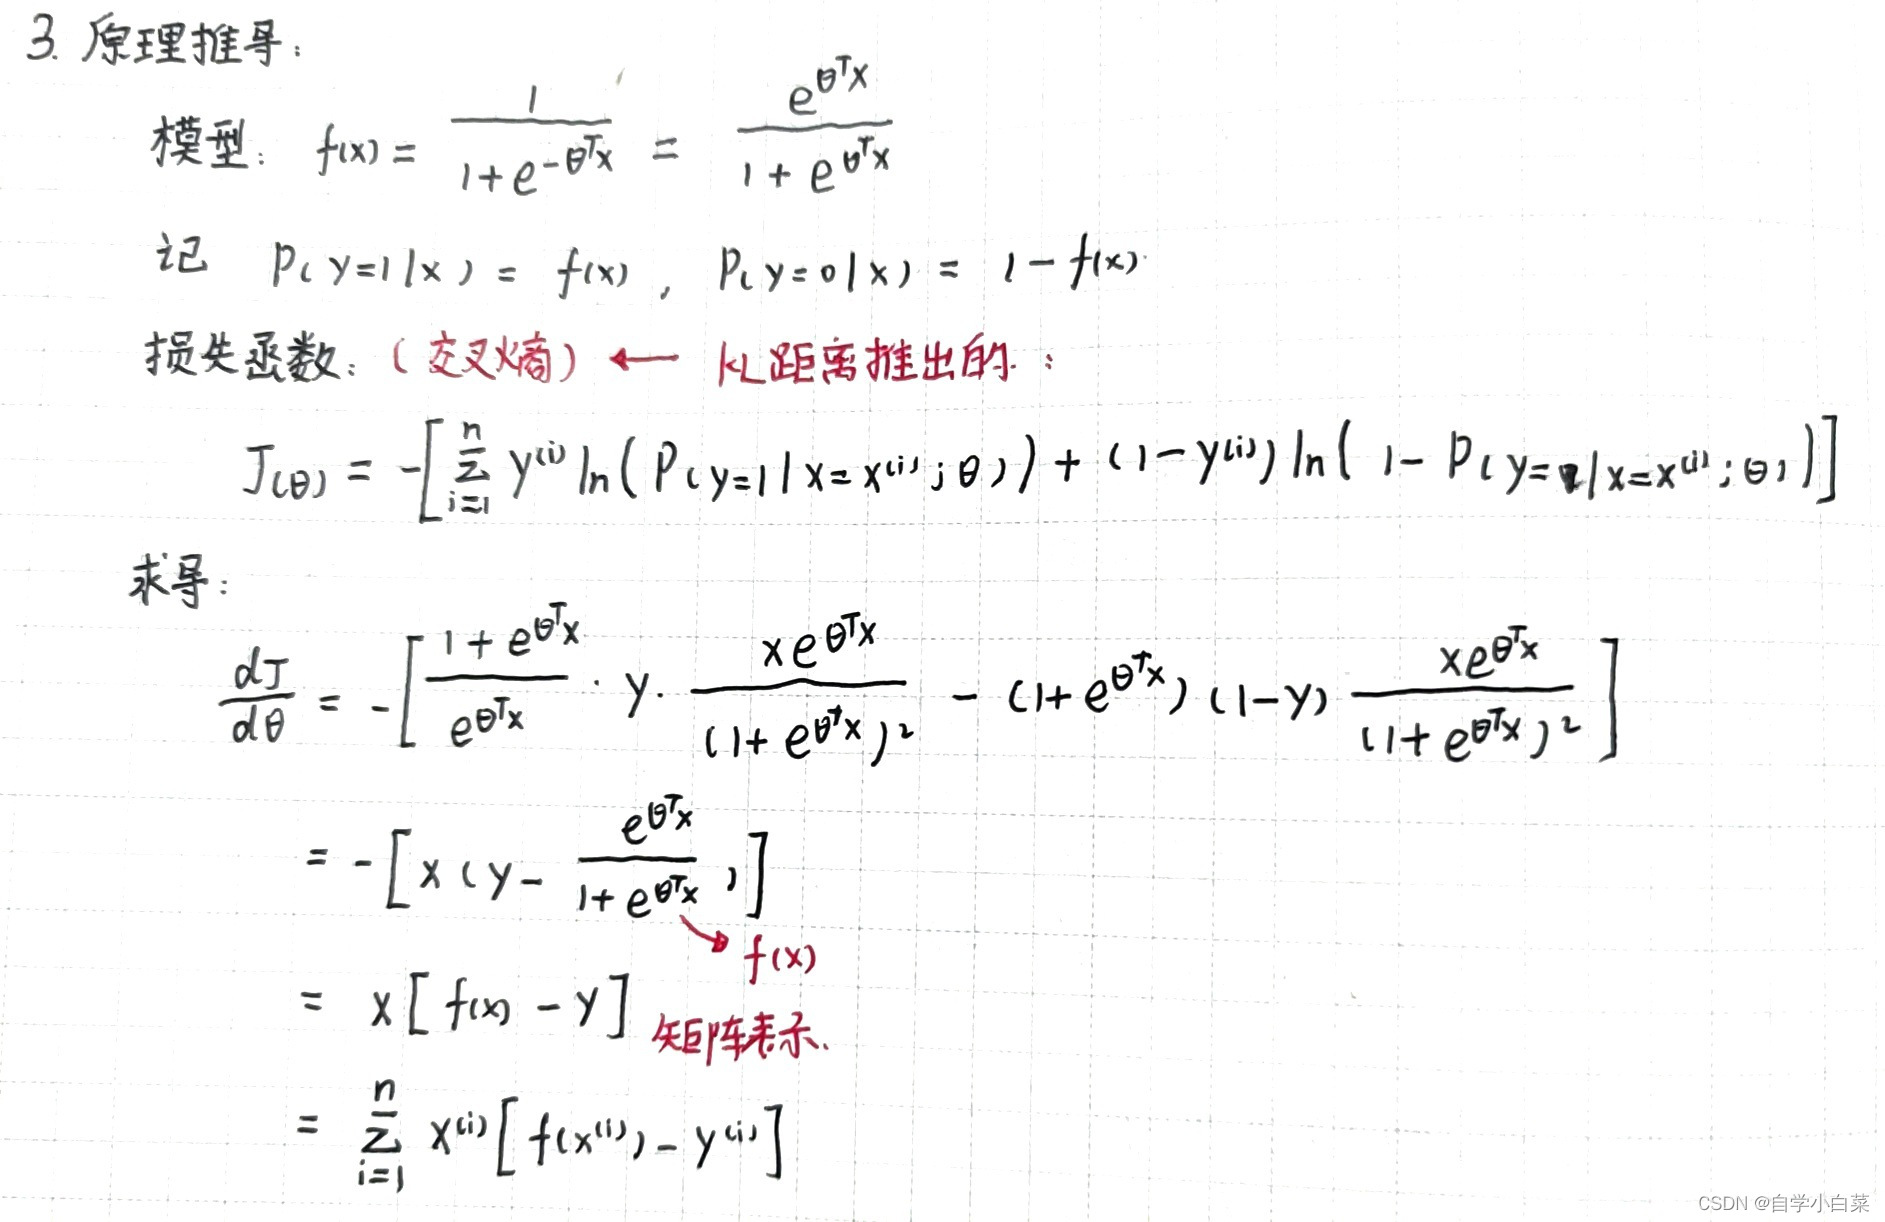 3. 原理推导：
模型： f(x) = 1 / (1 + e^{-θᵀx}) = e^{θᵀx} / (1 + e^{θᵀx})
记 P(y=1|x) = f(x) , P(y=0|x) = 1 - f(x).
损失函数：（交叉熵）← KL距离推出的：
J(θ) = -[ Σ_{i=1}^{n} y^{(i)} ln( P(y=1|x=x^{(i)};θ) ) + (1-y^{(i)}) ln( 1 - P(y=1|x=x^{(i)};θ) ) ]
求导：
dJ/dθ = -[ (1+e^{θᵀx}) / e^{θᵀx} · y · xe^{θᵀx} / (1+e^{θᵀx})² - (1+e^{θᵀx})(1-y) xe^{θᵀx} / (1+e^{θᵀx})² ]
= -[ x ( y - e^{θᵀx} / (1+e^{θᵀx}) ) ]
→ f(x)
= x [ f(x) - y ] 矩阵表示.
= Σ_{i=1}^{n} x^{(i)} [ f(x^{(i)}) - y^{(i)} ]
CSDN @自学小白菜